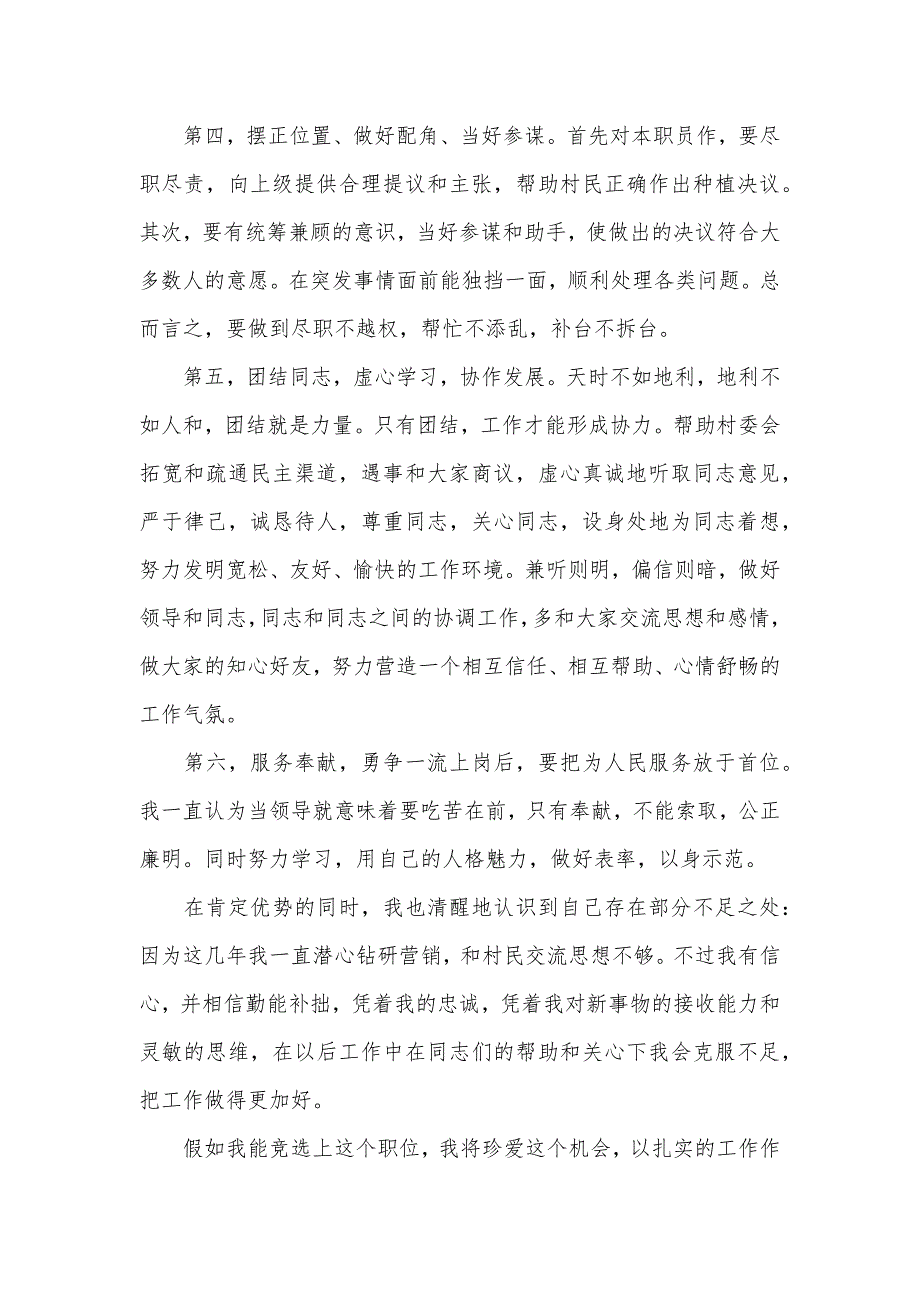 第四，摆正位置、做好配角、当好参谋。首先对本职员作，要尽
职尽责，向上级提供合理提议和主张，帮助村民正确作出种植决议。
其次，要有统筹兼顾的意识，当好参谋和助手，使做出的决议符合大
多数人的意愿。在突发事情面前能独挡一面，顺利处理各类问题。总
而言之，要做到尽职不越权，帮忙不添乱，补台不拆台。
第五，团结同志，虚心学习，协作发展。天时不如地利，地利不
如人和，团结就是力量。只有团结，工作才能形成协力。帮助村委会
拓宽和疏通民主渠道，遇事和大家商议，虚心真诚地听取同志意见，
严于律己，诚恳待人，尊重同志，关心同志，设身处地为同志着想，
努力发明宽松、友好、愉快的工作环境。兼听则明，偏信则暗，做好
领导和同志，同志和同志之间的协调工作，多和大家交流思想和感情，
做大家的知心好友，努力营造一个相互信任、相互帮助、心情舒畅的
工作气氛。
第六，服务奉献，勇争一流上岗后，要把为人民服务放于首位。
我一直认为当领导就意味着要吃苦在前，只有奉献，不能索取，公正
廉明。同时努力学习，用自己的人格魅力，做好表率，以身示范。
在肯定优势的同时，我也清醒地认识到自己存在部分不足之处：
因为这几年我一直潜心钻研营销，和村民交流思想不够。不过我有信
心，并相信勤能补拙，凭着我的忠诚，凭着我对新事物的接收能力和
灵敏的思维，在以后工作中在同志们的帮助和关心下我会克服不足，
把工作做得更加好。
假如我能竞选上这个职位，我将珍爱这个机会，以扎实的工作作